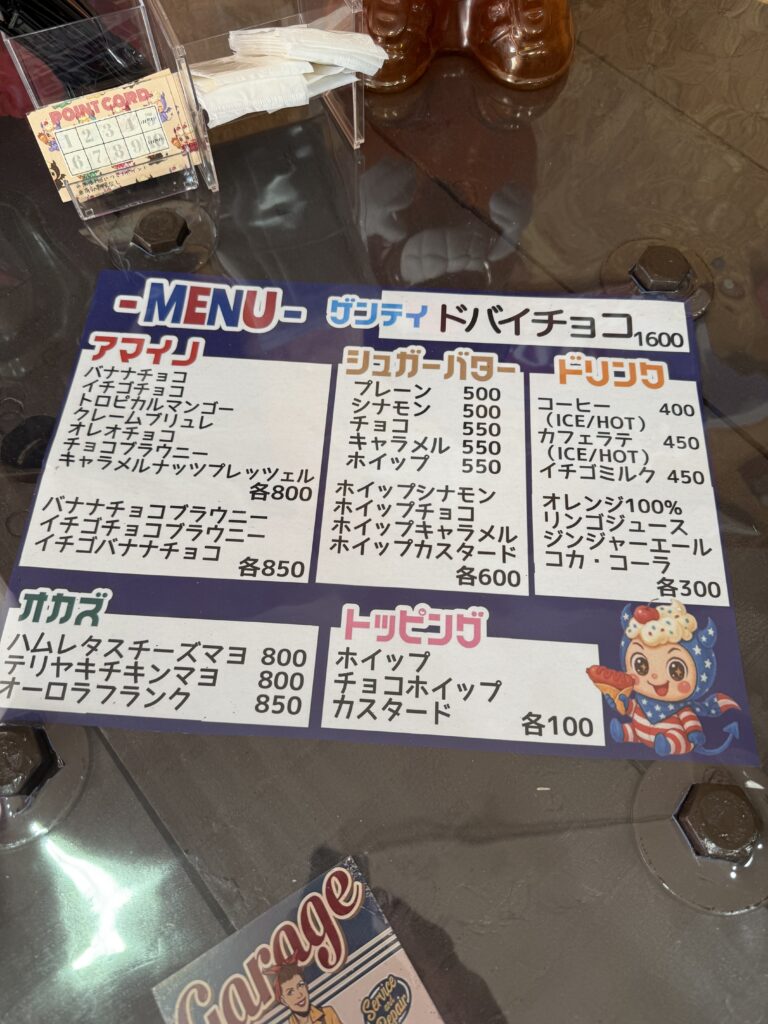 POINT CARD
1 2 3 4
6 7 8 9
-MENU-
ゲンテイ ドバイチョコ 1600
アマイノ
バナナチョコ
イチゴチョコ
トロピカルマンゴー
クレームブリュレ
オレオチョコ
チョコブラウニー
キャラメルナッツプレッツェル
各800
バナナチョコブラウニー
イチゴチョコブラウニー
イチゴバナナチョコ
各850
シュガーバター
プレーン 500
シナモン 500
チョコ 550
キャラメル 550
ホイップ 550
ホイップシナモン
ホイップチョコ
ホイップキャラメル
ホイップカスタード
各600
ドリンク
コーヒー 400
(ICE/HOT)
カフェラテ 450
(ICE/HOT)
イチゴミルク 450
オレンジ100%
リンゴジュース
ジンジャーエール
コカ・コーラ
各300
オカズ
ハムレタスチーズマヨ 800
テリヤキチキンマヨ 800
オーロラフランク 850
トッピング
ホイップ
チョコホイップ
カスタード
各100
Garage
Service
and
Repair